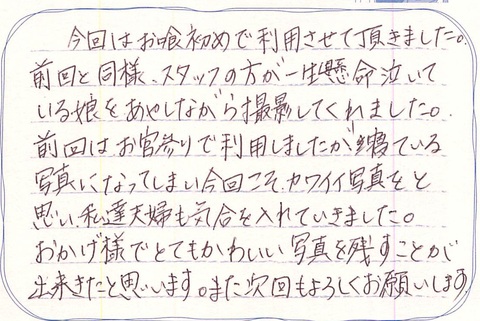 今回はお喰初めで利用させて頂きました。
前回と同様、スタッフの方が一生懸命泣いて
いる娘をあやしながら撮影してくれました。
前回はお宮参りで利用しましたが寝ている
写真になってしまい今回こそ、カワイイ写真をと
思い、私達夫婦も気合を入れていきました。
おかげ様でとてもかわいい写真を残すことが
出来きたと思います。また次回もよろしくお願いします